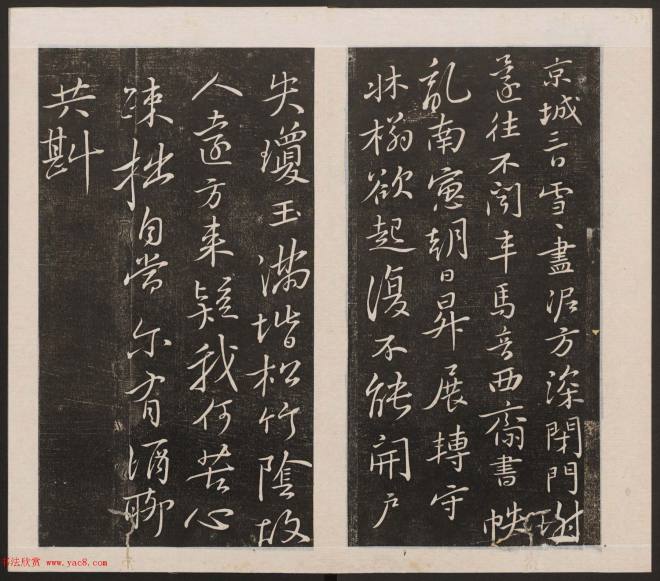 京城三日雪〻盡泥方深閉門謝
還往不聞車馬音西齋書帙
亂南窻朝日昇展轉守
牀榻欲起復不能開户
失瓊玉滿堦松竹陰故
人遠方来疑我何苦心
踈拙自當尓有酒聊
共斟
书法欣赏 www.yac8.com